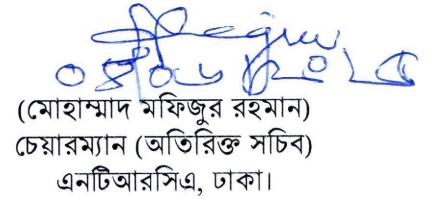 (মোহাম্মাদ মফিজুর রহমান)
চেয়ারম্যান (অতিরিক্ত সচিব)
এনটিআরসিএ, ঢাকা।